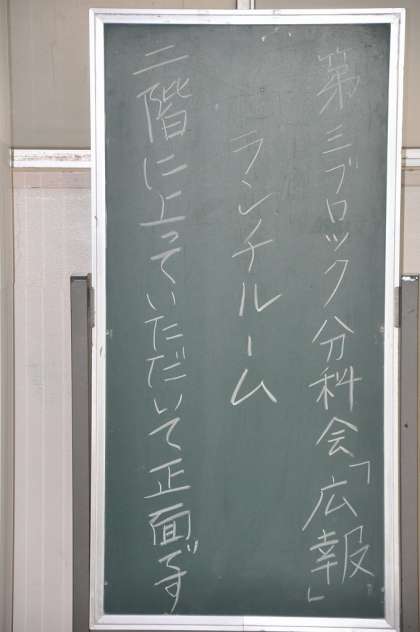 第三ブロック分科会「広報」
ランチルーム
二階に上っていただいて正面です